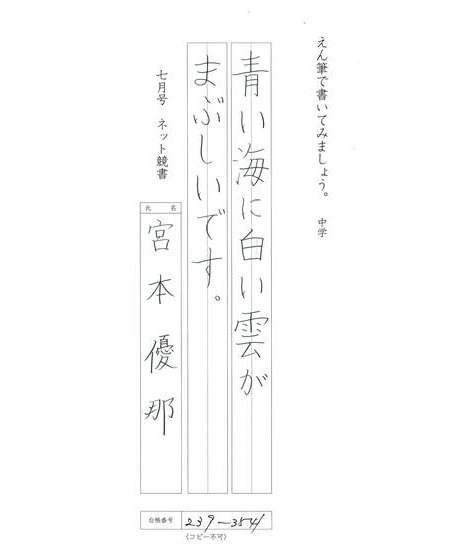 えん筆で書いてみましょう。 中学
青い海に白い雲が
まぶしいです。
七月号 ネット競書
氏名
宮本優那
台帳番号 239-354
〈コピー不可〉